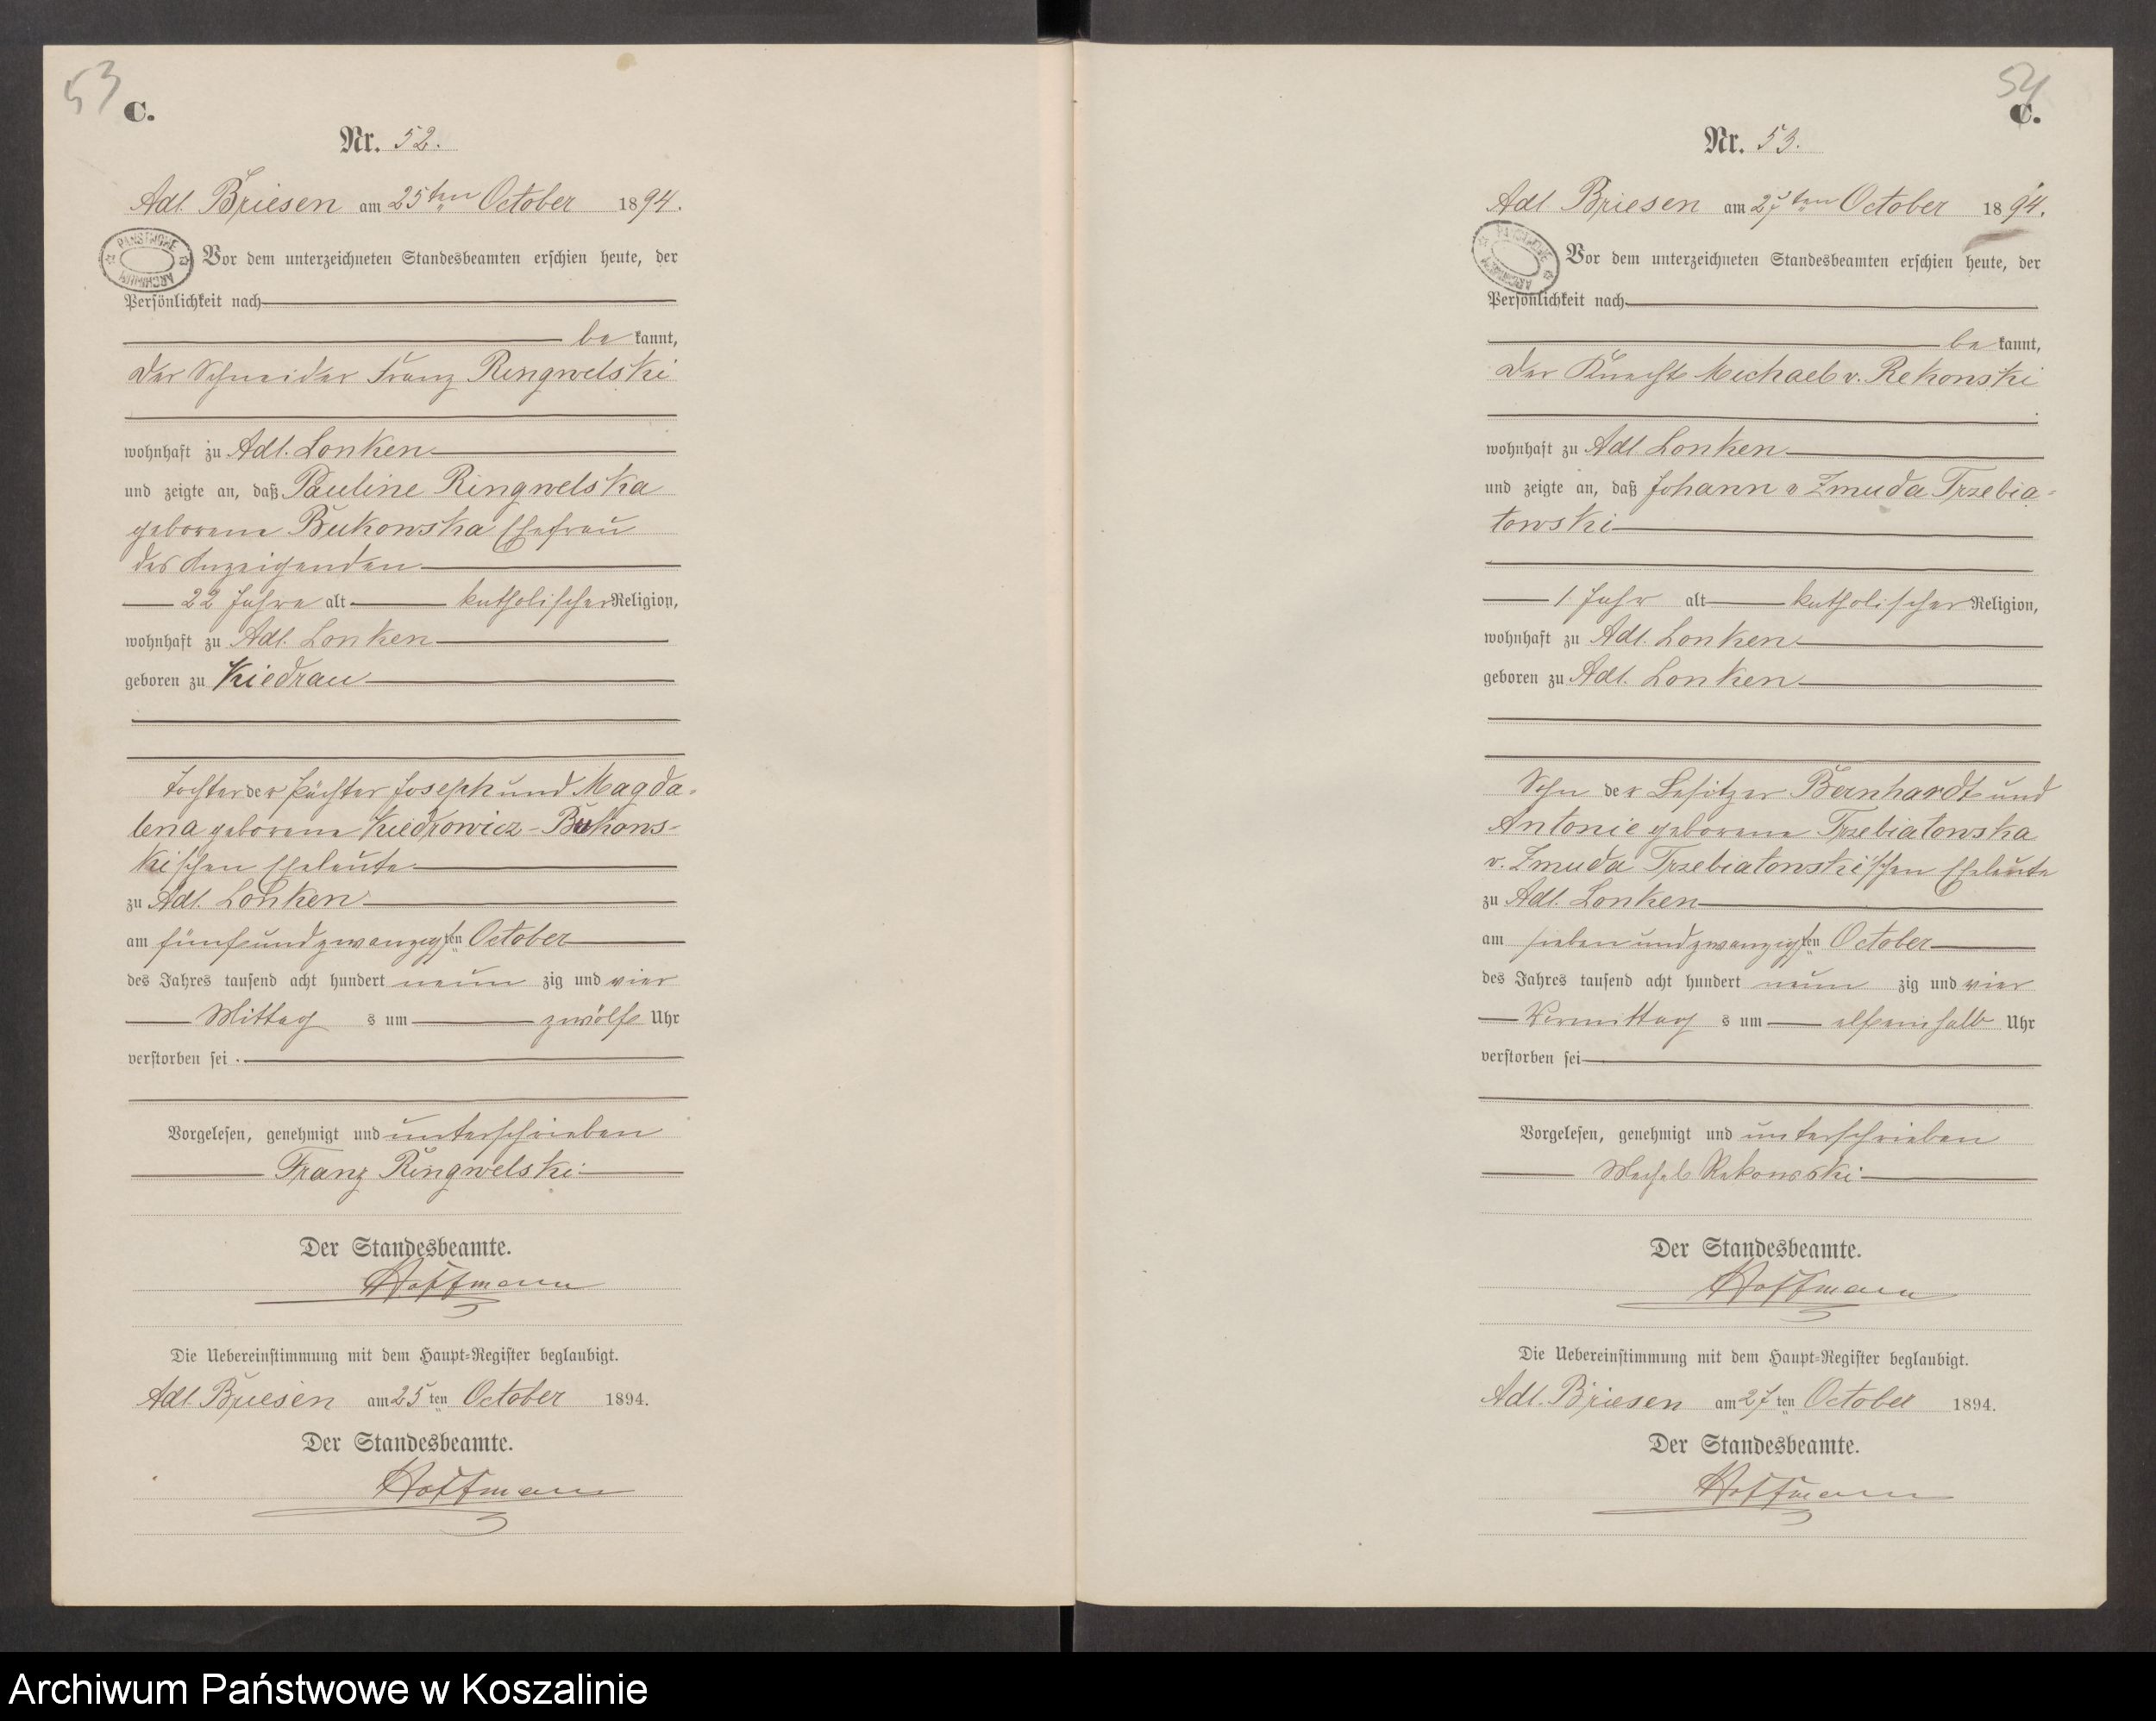 53
C.
Nr. 52.
Adl. Briesen am 25ten October 1894.
PANSTWOWE ARCHIWUM
Vor dem unterzeichneten Standesbeamten erschien heute, der
Persönlichkeit nach
be kannt,
der Schneider Franz Ringwelski
wohnhaft zu Adl. Lonken
und zeigte an, daß Pauline Ringwelska
geborene Bukowska Ehefrau
des Anzeigenden
22 Jahre alt katholischer Religion,
wohnhaft zu Adl. Lonken
geboren zu Kiedrau
Tochter der Pächter Joseph und Magda-
lena geborene Kiedrowicz-Bukows-
kischen Eheleute
zu Adl. Lonken
am fünfundzwanzigsten October
des Jahres tausend acht hundert neun zig und vier
Mittag s um zwölf Uhr
verstorben sei.
Vorgelesen, genehmigt und unterschrieben
Franz Ringwelski
Der Standesbeamte.
Hoffmann
Die Uebereinstimmung mit dem Haupt-Register beglaubigt.
Adl. Briesen am 25 ten October 1894.
Der Standesbeamte.
Hoffmann
54
C.
Nr. 53.
Adl. Briesen am 27ten October 1894.
PANSTWOWE ARCHIWUM
Vor dem unterzeichneten Standesbeamten erschien heute, der
Persönlichkeit nach
be kannt,
der Knecht Michael v. Rekonski
wohnhaft zu Adl. Lonken
und zeigte an, daß Johann v Zmuda Trzebia-
towski
1 Jahr alt katholischer Religion,
wohnhaft zu Adl. Lonken
geboren zu Adl. Lonken
Sohn der Besitzer Bernhardt und
Antonie geborene Trzebiatowska
v. Zmuda Trzebiatowski'schen Eheleute
zu Adl. Lonken
am siebenundzwanzigsten October
des Jahres tausend acht hundert neun zig und vier
Vormittag s um elfeinhalb Uhr
verstorben sei
Vorgelesen, genehmigt und unterschrieben
Rekowski
Der Standesbeamte.
Hoffmann
Die Uebereinstimmung mit dem Haupt-Register beglaubigt.
Adl. Briesen am 27 ten October 1894.
Der Standesbeamte.
Hoffmann
Archiwum Państwowe w Koszalinie